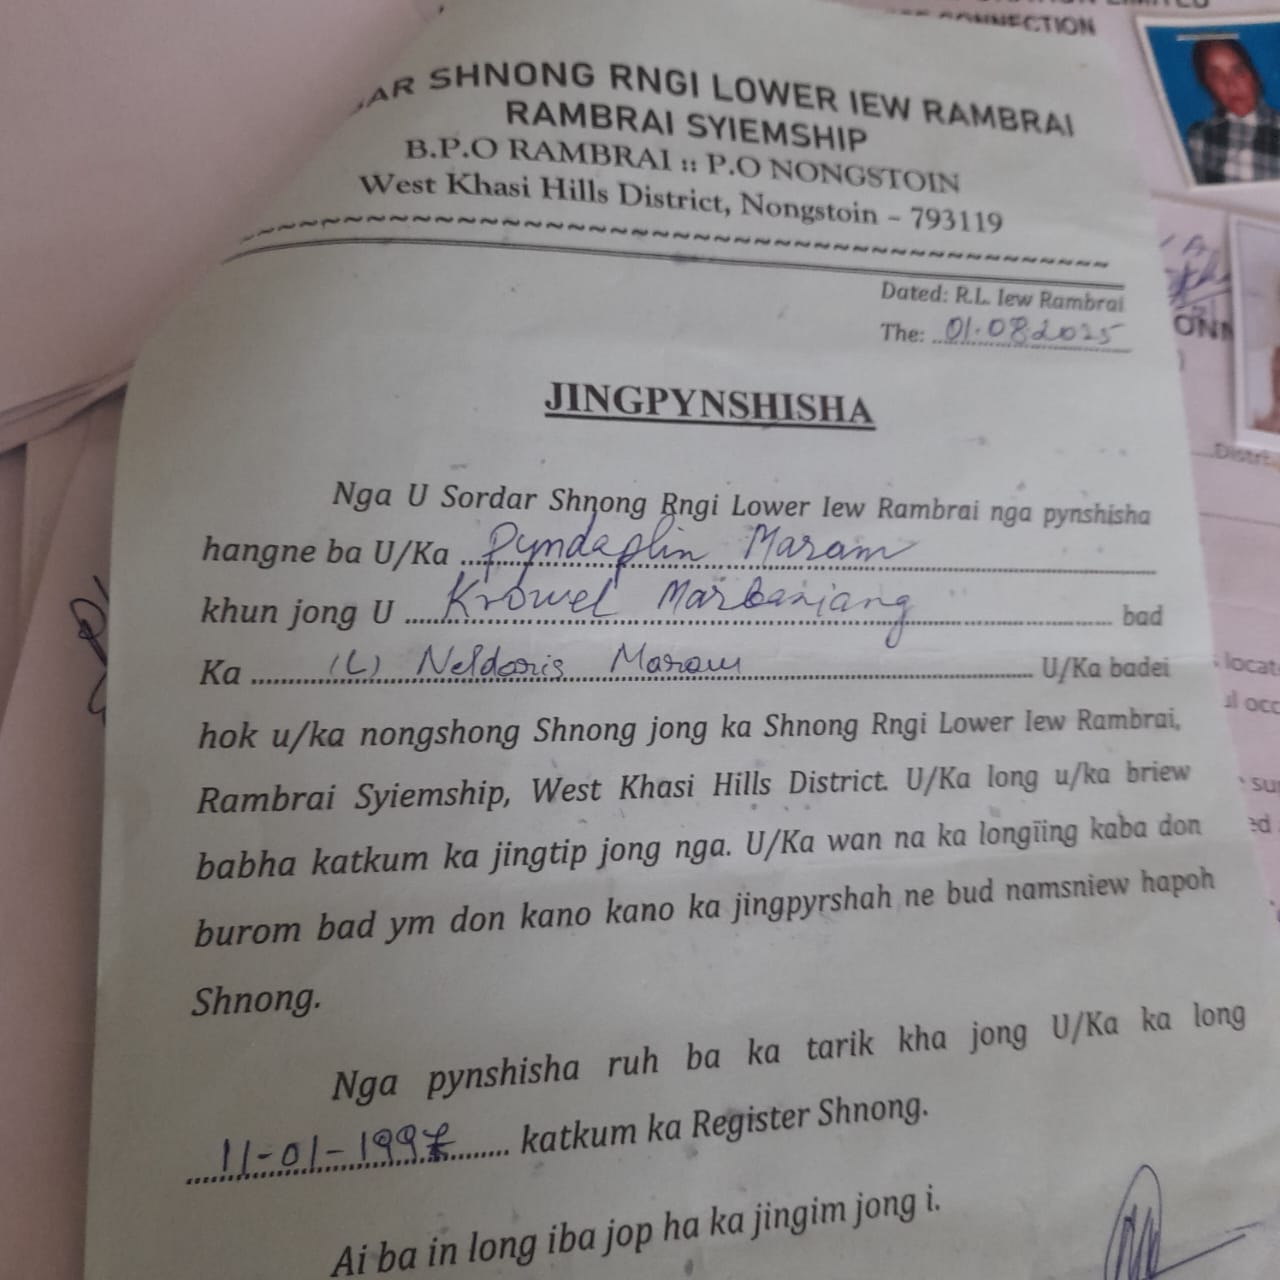 CONNECTION
SHNONG RNGI LOWER IEW RAMBRAI
RAMBRAI SYIEMSHIP
B.P.O RAMBRAI :: P.O NONGSTOIN
West Khasi Hills District, Nongstoin – 793119
Dated: R.L. Iew Rambrai
The: 01.08.2025
JINGPYNSHISHA
Nga U Sordar Shnong Rngi Lower Iew Rambrai nga pynshisha
hangne ba U/Ka Pyndaplin Maram
khun jong U Krowel Marbaniang bad
Ka (L) Neldoris Maram U/Ka badei
hok u/ka nongshong Shnong jong ka Shnong Rngi Lower Iew Rambrai,
Rambrai Syiemship, West Khasi Hills District. U/Ka long u/ka briew
babha katkum ka jingtip jong nga. U/Ka wan na ka longïing kaba don
burom bad ym don kano kano ka jingpyrshah ne bud namsniew hapoh
Shnong.
Nga pynshisha ruh ba ka tarik kha jong U/Ka ka long
11-01- katkum ka Register Shnong.
Ai ba in long iba jop ha ka jingim jong i.